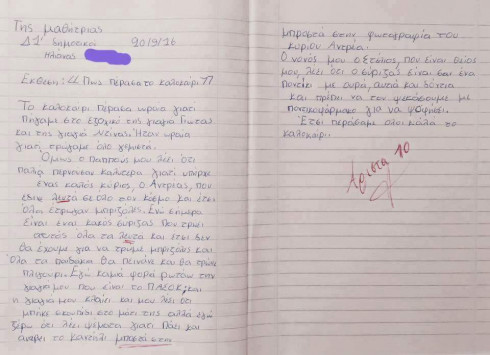 Της μαθήτριας
Δ1' δημοτικού 20/9/16
Ηλιάνας
Έκθεση: "Πώς πέρασα το καλοκαίρι"
Το καλοκαίρι πέρασα ωραία γιατί
πήγαμε στο εξοχικό της γιαγιά Γιώτας
και της γιαγιά Ντίνας. Ήταν ωραία
γιατί τρώγαμε όλο χταπόδι.
Όμως ο παππούς μου λέει ότι
παλιά περνούσαν καλύτερα γιατί υπήρχε
ένας καλός κύριος, ο Αντρέας, που
έδινε λευτά σε όλο τον κόσμο και έτσι
όλοι έτρωγαν μπριζόλες. Ενώ σήμερα
είναι ένας κακός σύριζας που τρώει
αυτός όλα τα λευτά και έτσι δεν
θα έχουμε για να τρώμε μπριζόλες και
όλα τα παιδάκια θα πεινάνε και θα τρώνε
πλιγούρι. Εγώ καμιά φορά ρωτάω την
γιαγιά μου που είναι το ΠΑΣΟΚ; και
η γιαγιά μου κλαίει και μου λέει ότι
μπήκε σκουπίδι στο μάτι της αλλά εγώ
ξέρω ότι λέει ψέματα γιατί πάει και
ανάβει το καντήλι μπροστά στη
μπροστά στην φωτογραφία του
κύριου Αντρέα.
Ο νονός μου ο Στέλιος, που είναι θείος
μου, λέει ότι ο σύριζας είναι σαν ένα
ποντίκι με ουρά, αυτιά και δόντια
και πρέπει να τον ψεκάσουμε με
ποντικοφάρμακο για να ψοφήσει.
Έτσι περάσαμε όλοι καλά το
καλοκαίρι.
Άριστα 10